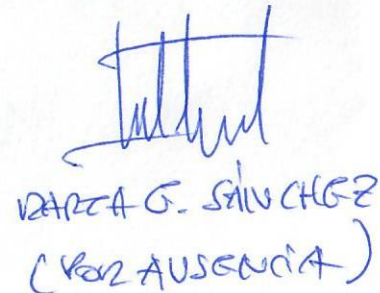 MARTA G. SÁNCHEZ
(POR AUSENCIA)